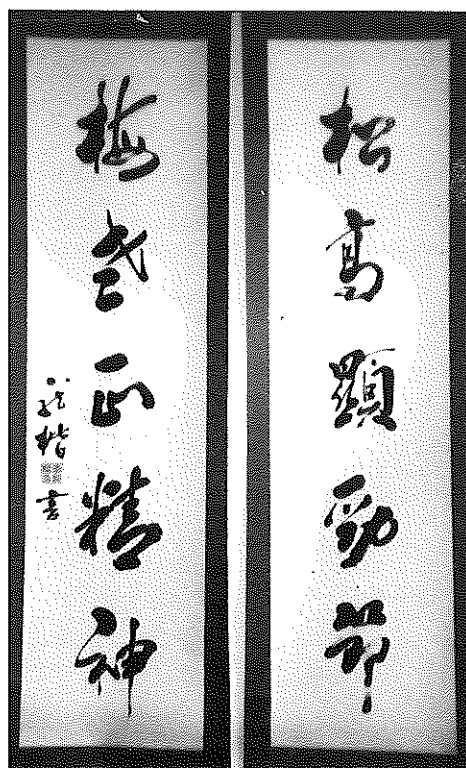 松高顯勁節
梅老正精神
楷書